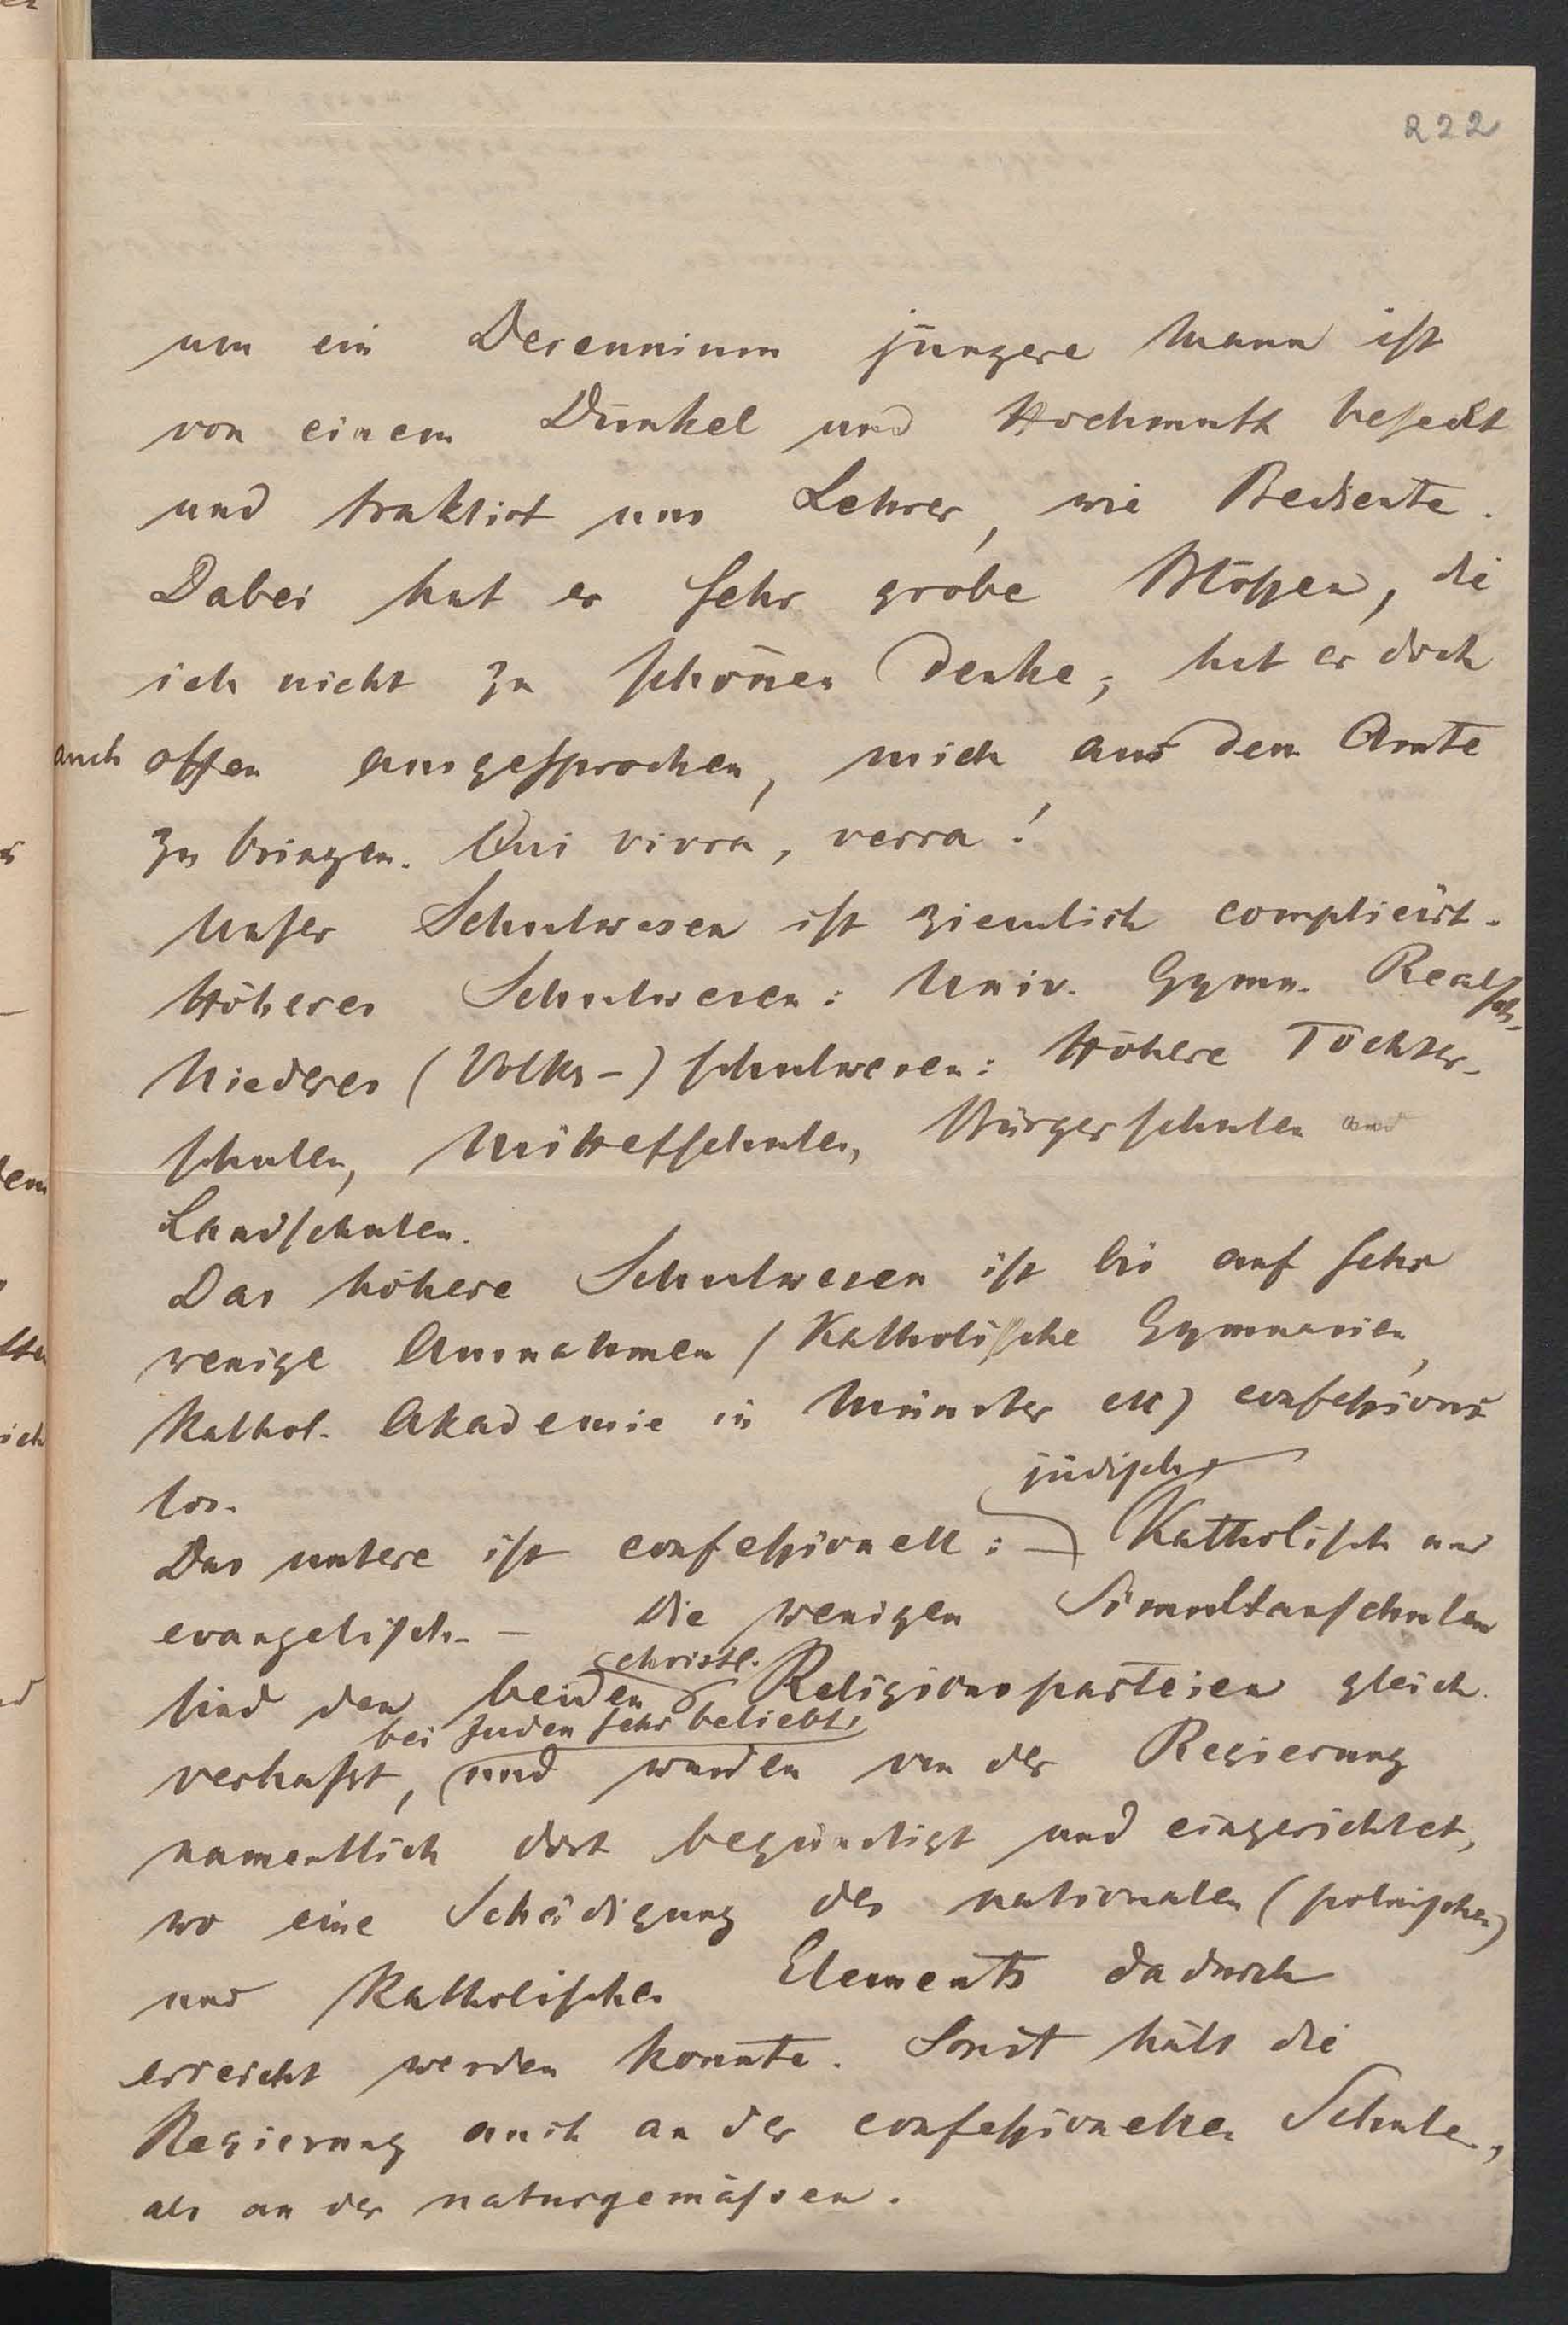 222
um ein Decennium jüngere Mann ist
von einem Dünkel und Hochmuth beseelt
und traktirt uns Lehrer, wie Bediente.
Dabei hat er sehr grobe Blößen, die
ich nicht zu schonen denke; hat er doch
auch offen ausgesprochen, mich aus dem Amte
zu bringen. Qui vivra, verra!
Unser Schulwesen ist ziemlich complicirt.
Höheres Schulwesen: Univ. Gymn. Realsch.
Niederes (Volks-) schulwesen: Höhere Töchter-
schulen, Mittelschulen, Bürgerschulen und
Landschulen.
Das höhere Schulwesen ist bis auf sehr
wenige Ausnahmen (Katholische Gymnasien,
Kathol. Akademie in Münster etc) confessions-
los.
jüdisch
Das untere ist confessionell: Katholisch und
evangelisch. – Die wenigen Simultanschulen
christl.
sind den beiden Religionsparteien gleich
bei Juden sehr beliebt,
verhaßt, und wurden von der Regierung
namentlich dort begünstigt und eingerichtet,
wo eine Schädigung des nationalen (polnischen)
und Katholischen Elements dadurch
erreicht werden konnte. Sonst hält die
Regierung auch an der confessionellen Schule,
als an der naturgemäßen.